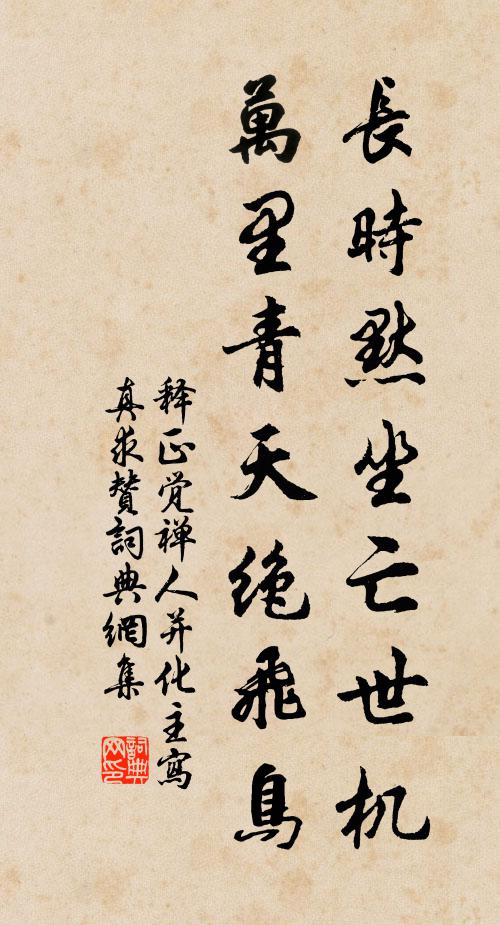 長時默坐亡世机
萬里青天絕飛鳥
释正觉禅人并化主寫
真求赞詞典網集
詞典网印